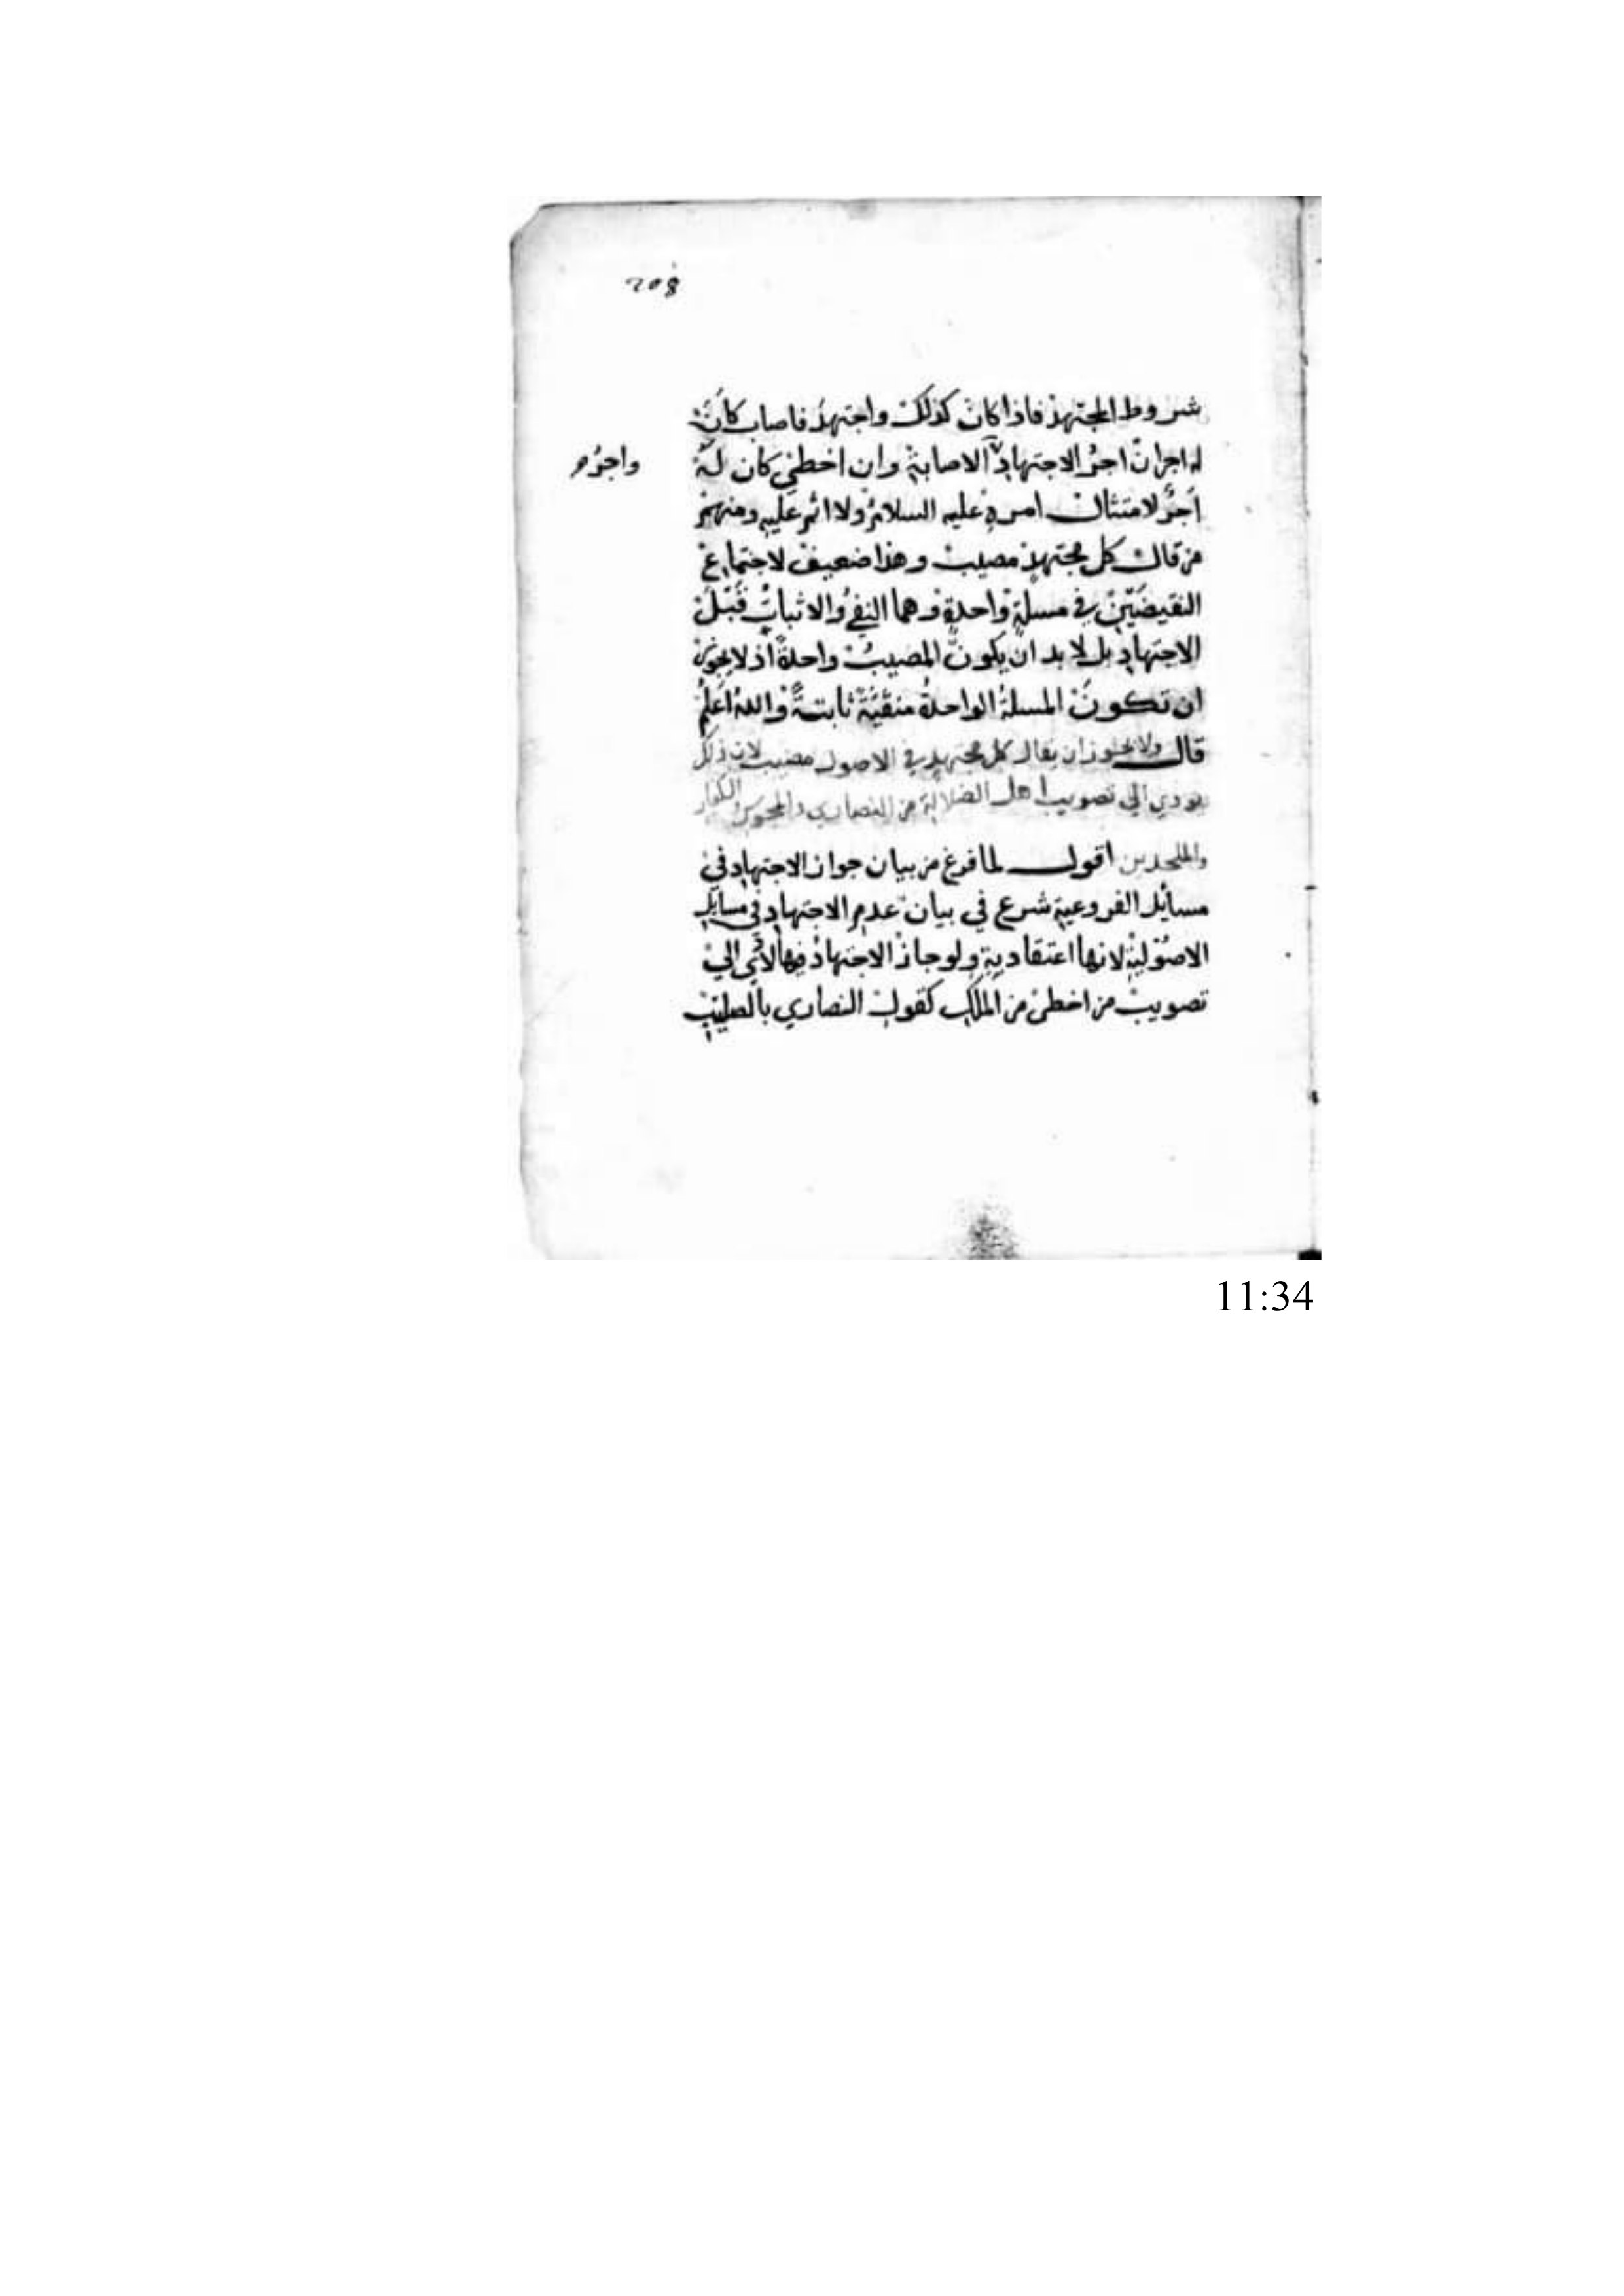 208
شروط المجتهد فاذا كان كذلك واجتهد فاصاب كان
له اجران اجر الاجتهاد الاصابة وان اخطئ كان له
واجر
اجر لامتثال امره عليه السلام ولا اثم عليه ومنهم
من قال كل مجتهد مصيب وهذا ضعيف لاجتماع
النقيضين في مسلة واحدة وهما النفي والاثبات قبل
الاجتهاد بل لا بد ان يكون المصيب واحدة اذ لا يجوز
ان تكون المسلة الواحدة منفية ثابتة والله اعلم
قال ولا يجوز ان يقال كل مجتهد في الاصول مصيب لان ذلك
يودي الى تصويب اهل الضلالة من النصاري والمجوس الكفار
والملحدين اقول لما فرغ من بيان جواز الاجتهاد في
مسائل الفروعية شرع في بيان عدم الاجتهاد في مسايل
الاصولية لانها اعتقادية ولو جاز الاجتهاد فيها الى
تصويب من اخطئ من الملل كقول النصاري بالصليب
11:34